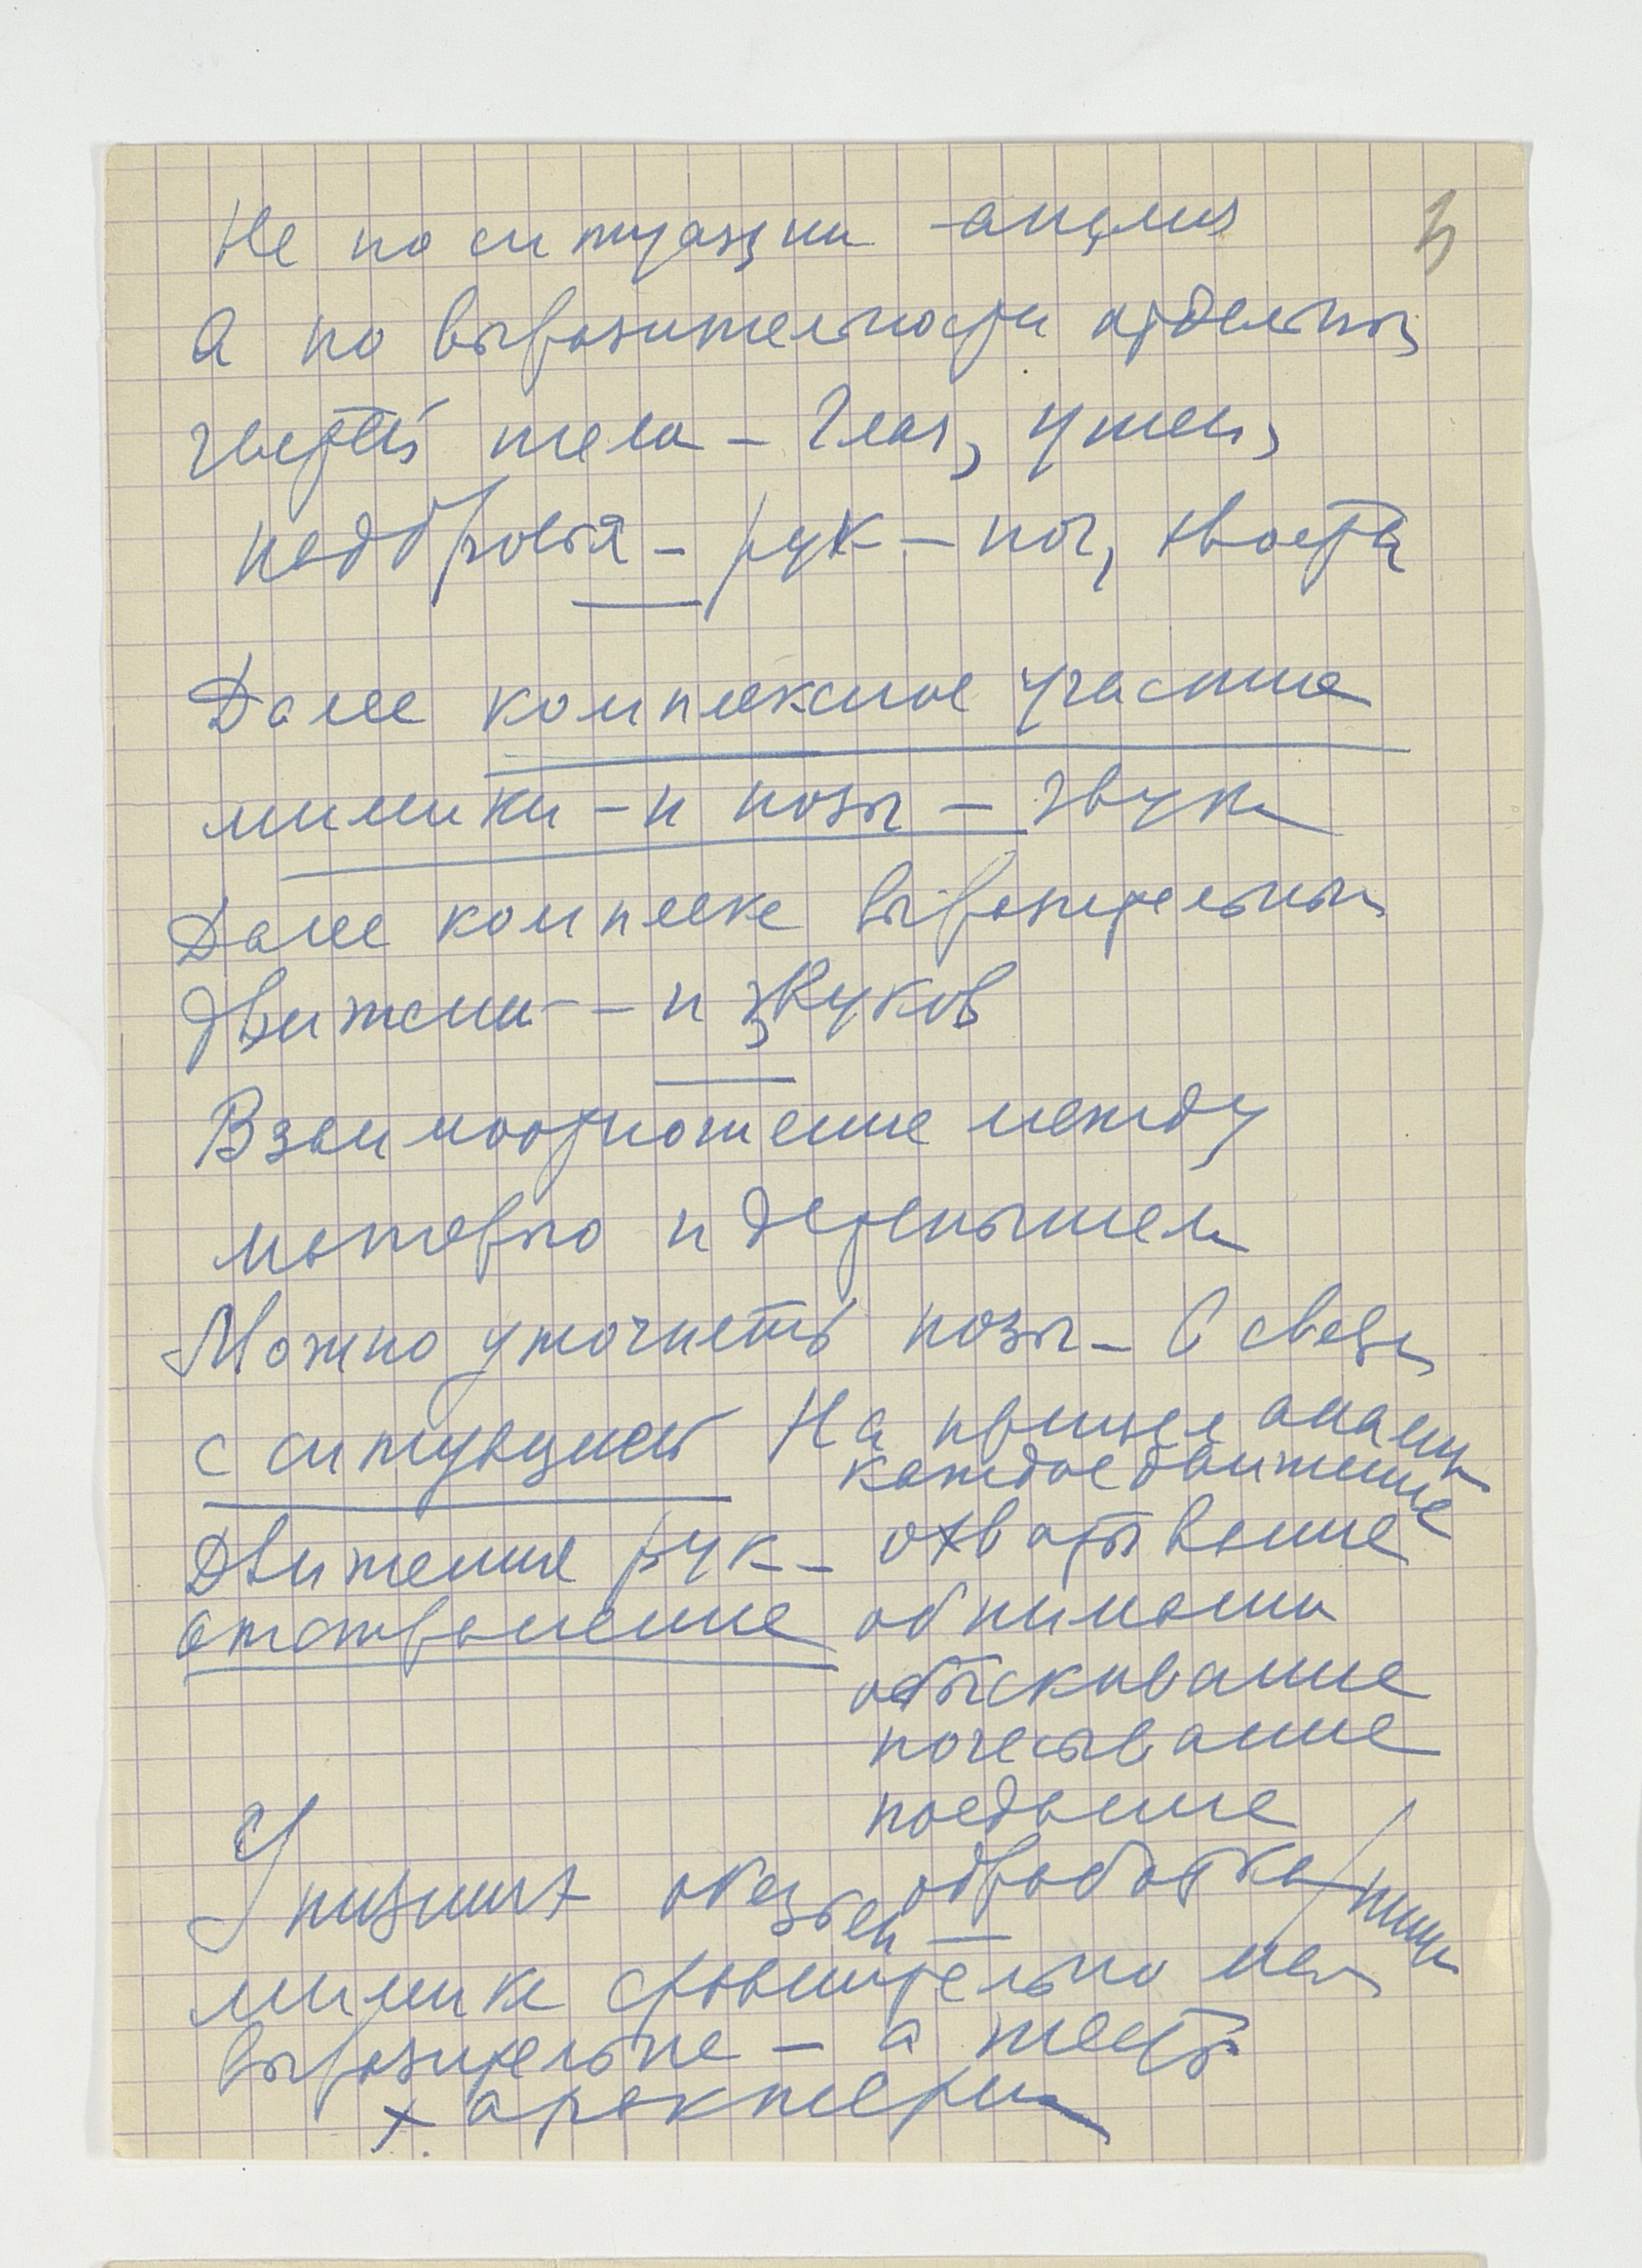 3
Не по ситуации анализ
а по выразительности отдельных
частей тела – глаз, ушей,
надбровья – рук – ног, хвоста
Далее комплексное участие
мимики – и позы – звука
Далее комплекс выразительных
движений – и звуков
Взаимоотношение между
матерью и детенышем
Можно уточнять позы – в связи
с ситуацией На
каждое движение
Движения рук – охватывание
отстранение обнимание
обыскивание
почесывание
поедание
У низших обезьян обработка пищи
мимика сравнительно мал
выразительна – а жесты
характерны